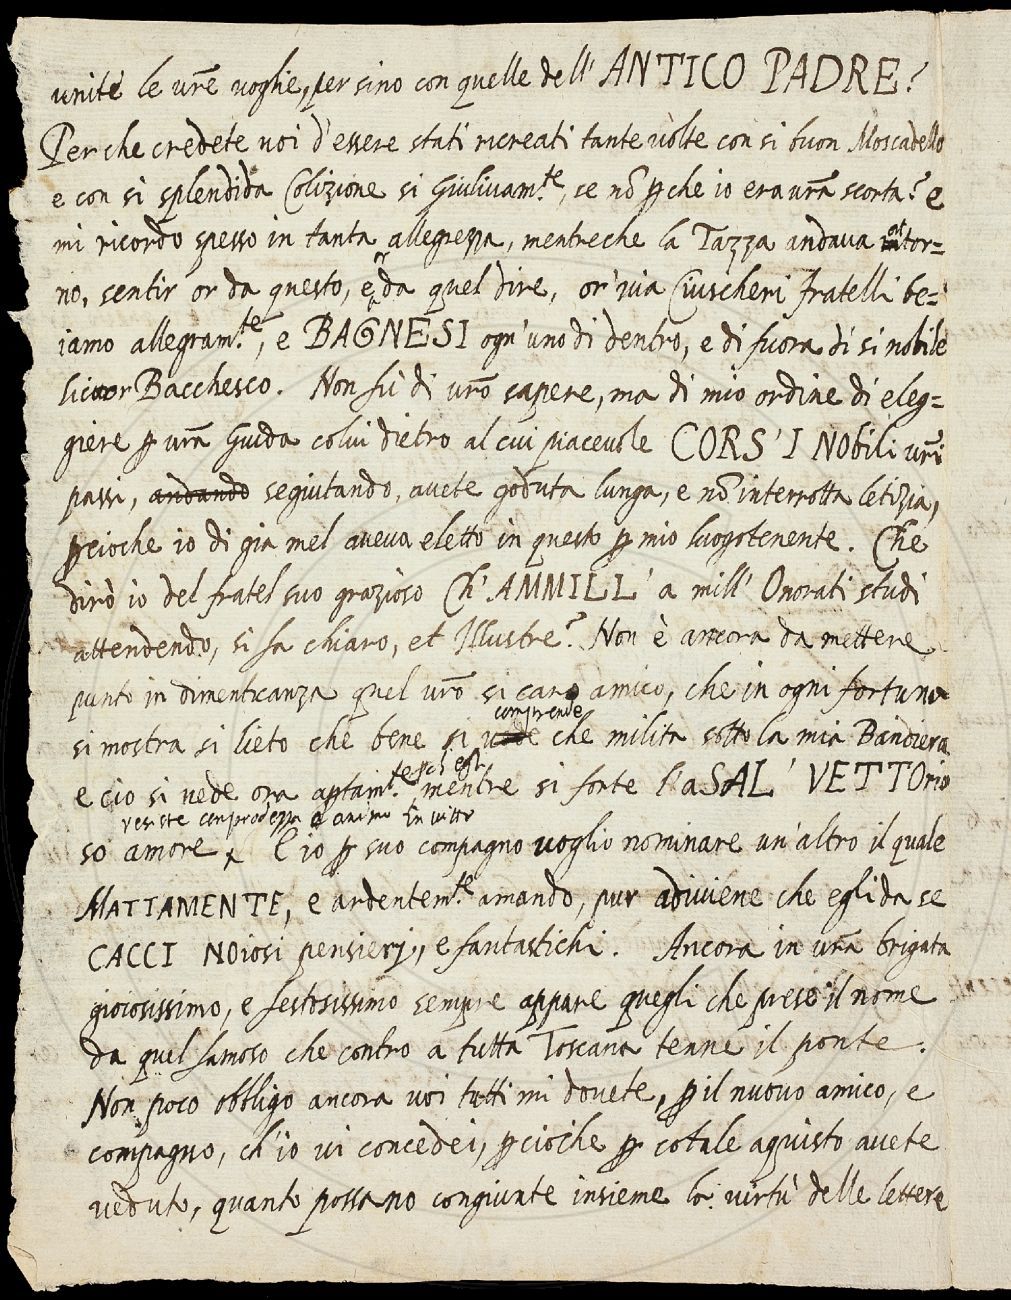 unite le vrẽ voglie, per sino con quelle dell' ANTICO PADRE?
Per che credete voi d'essere stati ricreati tante volte con si buon Moscadello
e con si splendida Colizione si Giulivam.te, se nõ ꝑche io era vrã scorta? e
mi ricordo spesso in tanta allegrezza, mentreche la Tazza andava attor=
no, sentir or da questo, e or da quel dire, or' via Ciuscheri fratelli be=
iamo allegram.te, e BAGNESI ogn'uno di dentro, e di fuora di si nobile
licuor Bacchesco. Non fù di vrõ sapere, ma di mio ordine di eleg=
giere ꝑ vrã Guida colui dietro al cui piacevole CORS' I NObili vrĩ
passi, andando seguitando, avete goduta lunga, e nõ interrotta letizia,
ꝑcioche io di gia mel aveva eletto in questo ꝑ mio luogotenente. Che
dirò io del fratel suo grazioso Ch' AMMILL' a mill' Onorati studi
attendendo, si fa chiaro, et Illustre? Non è ancora da mettere
punto in dimenticanza quel vrõ si caro amico, che in ogni fortuna
si mostra si lieto che bene si comprende che milita sotto la mia Bandiera
e ciò si vede ora aptam.te mentre si forte l'aSAL' VETTOrio
resiste con prodezza d'animo Invitto
so amore E io ꝑ suo compagno voglio nominare un'altro il quale
MATTAMENTE, e ardentem.te amando, pur adiviene che egli da se
CACCI NOiosi pensierj, e fantastichi. Ancora in vrã brigata
gioiosissimo, e festosissimo sempre appare quegli che prese il nome
da quel famoso che contro a tutta Toscana tenne il ponte.
Non poco obbligo ancora voi tutti mi dovete, ꝑ il nuovo amico, e
compagno, ch'io vi concedei, ꝑcioche ꝑ cotale aquisto avete
veduto, quanto possano congiunte insieme la virtù delle lettere